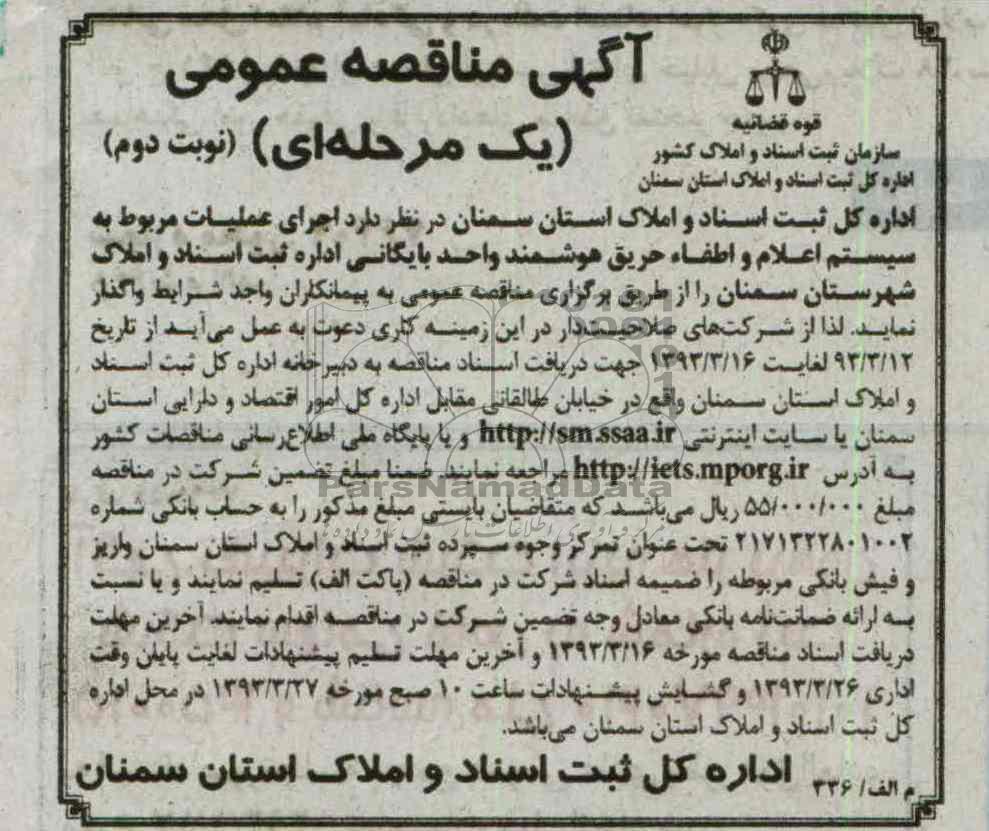 آگهی مناقصه عمومی
(یک مرحله‌ای) (نوبت دوم)
قوه قضائیه
سازمان ثبت اسناد و املاک کشور
اداره کل ثبت اسناد و املاک استان سمنان
اداره کل ثبت اسناد و املاک استان سمنان در نظر دارد اجرای عملیات مربوط به
سیستم اعلام و اطفاء حریق هوشمند واحد بایگانی اداره ثبت اسناد و املاک
شهرستان سمنان را از طریق برگزاری مناقصه عمومی به پیمانکاران واجد شرایط واگذار
نماید. لذا از شرکت‌های صلاحیت‌دار در این زمینه کاری دعوت به عمل می‌آید از تاریخ
۹۳/۳/۱۲ لغایت ۱۳۹۳/۳/۱۶ جهت دریافت اسناد مناقصه به دبیرخانه اداره کل ثبت اسناد
و املاک استان سمنان واقع در خیابان طالقانی مقابل اداره کل امور اقتصاد و دارایی استان
سمنان یا سایت اینترنتی http://sm.ssaa.ir و یا پایگاه ملی اطلاع‌رسانی مناقصات کشور
به آدرس http://iets.mporg.ir مراجعه نمایند. ضمنا مبلغ تضمین شرکت در مناقصه
مبلغ ۵۵/۰۰۰/۰۰۰ ریال می‌باشد که متقاضیان بایستی مبلغ مذکور را به حساب بانکی شماره
۲۱۷۱۳۲۲۸۰۱۰۰۲ تحت عنوان تمرکز وجوه سپرده ثبت اسناد و املاک استان سمنان واریز
و فیش بانکی مربوطه را ضمیمه اسناد شرکت در مناقصه (پاکت الف) تسلیم نمایند و یا نسبت
به ارائه ضمانت‌نامه بانکی معادل وجه تضمین شرکت در مناقصه اقدام نمایند. آخرین مهلت
دریافت اسناد مناقصه مورخه ۱۳۹۳/۳/۱۶ و آخرین مهلت تسلیم پیشنهادات لغایت پایان وقت
اداری ۱۳۹۳/۳/۲۶ و گشایش پیشنهادات ساعت ۱۰ صبح مورخه ۱۳۹۳/۳/۲۷ در محل اداره
کل ثبت اسناد و املاک استان سمنان می‌باشد.
اداره کل ثبت اسناد و املاک استان سمنان
م الف/ ۳۳۶
ParsNamadData